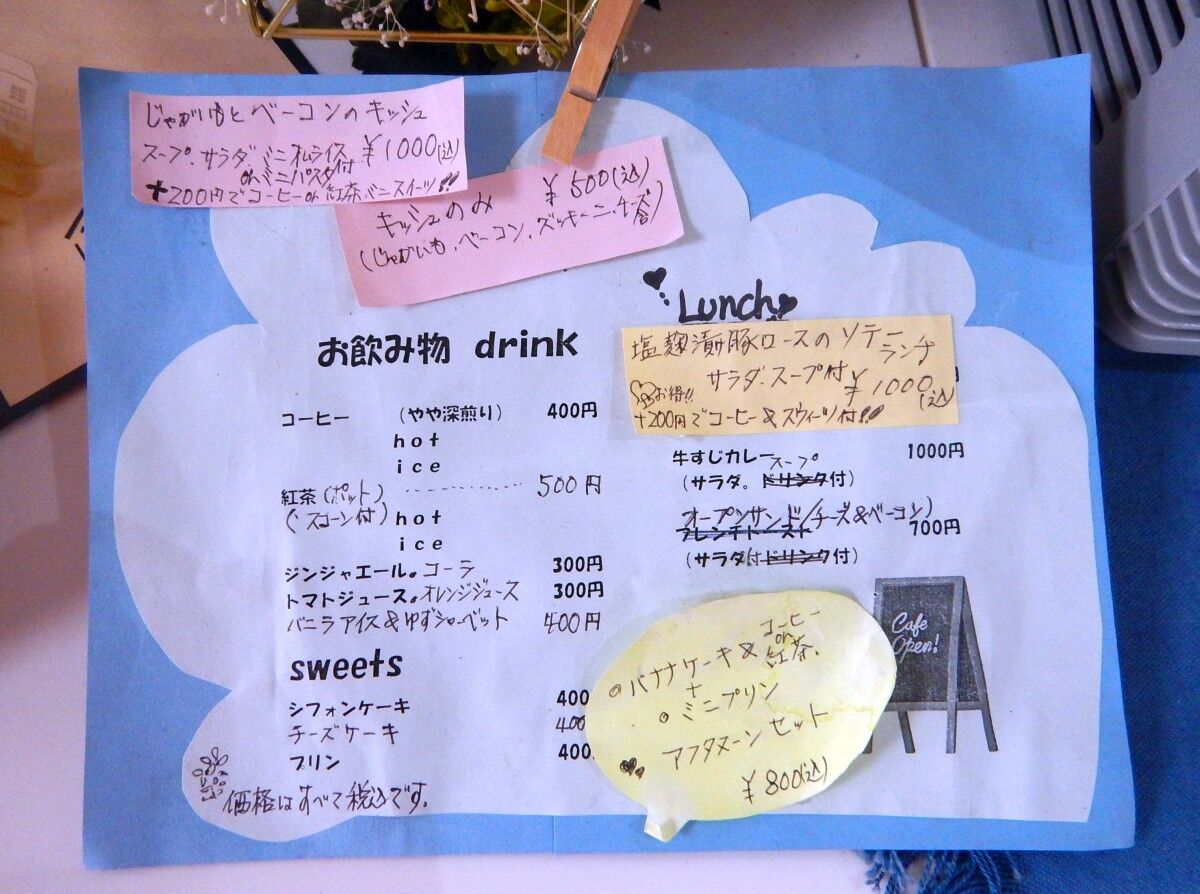 じゃがいもとベーコンのキッシュ
スープ、サラダ、ミニオムライス ¥1000(込)
orミニパスタ付
+200円でコーヒーor紅茶、ミニスイーツ!!
キッシュのみ ¥500(込)
(じゃがいも、ベーコン、ズッキーニ、チーズ)
お飲み物 drink
コーヒー (やや深煎り) 400円
hot
ice
紅茶(ポット) 500円
(スコーン付) hot
ice
ジンジャエール。コーラ 300円
トマトジュース。オレンジジュース 300円
バニラアイス&ゆずシャーベット 400円
sweets
シフォンケーキ 400
チーズケーキ 400
プリン 400
価格はすべて税込です。
Lunch
塩麹漬豚ロースのソテー
ランチ
サラダ、スープ付 ¥1000(込)
お得!!
+200円でコーヒー&スウィーツ付!!
牛すじカレー 1000円
スープ
(サラダ。ドリンク付)
オープンサンド(チーズ&ベーコン)
フレンチトースト 700円
(サラダ付ドリンク付)
Cafe
Open!
バナナケーキ&コーヒー
or
紅茶、
+
ミニプリン
アフタヌーンセット
¥800(込)